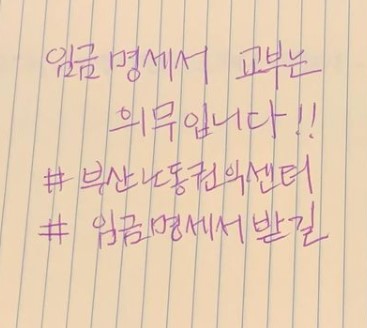 임금명세서 교부는
의무입니다!!
# 부산노동권익센터
# 임금명세서받길